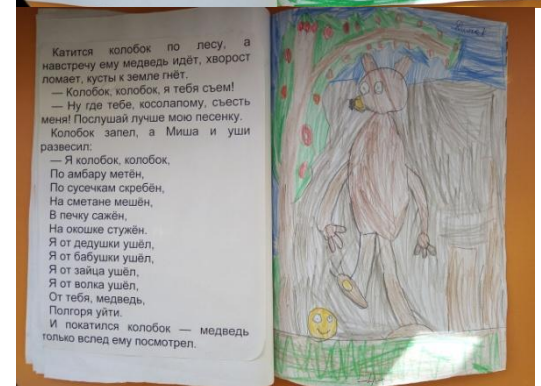 Катится колобок по лесу, а
навстречу ему медведь идёт, хворост
ломает, кусты к земле гнёт.
— Колобок, колобок, я тебя съем!
— Ну где тебе, косолапому, съесть
меня! Послушай лучше мою песенку.
Колобок запел, а Миша и уши
развесил:
— Я колобок, колобок,
По амбару метён,
По сусечкам скребён,
На сметане мешён,
В печку сажён,
На окошке стужён.
Я от дедушки ушёл,
Я от бабушки ушёл,
Я от зайца ушёл,
Я от волка ушёл,
От тебя, медведь,
Полгоря уйти.
И покатился колобок — медведь
только вслед ему посмотрел.